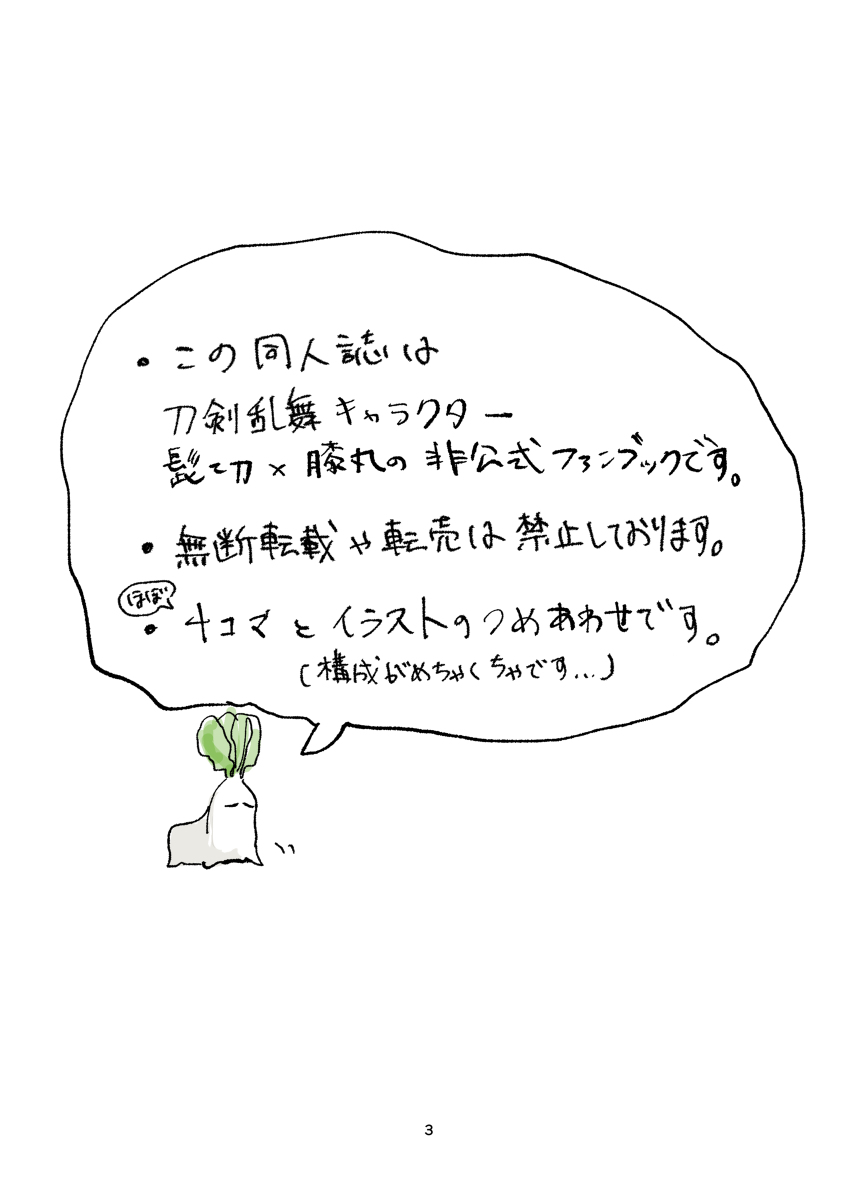 ・この同人誌は
刀剣乱舞キャラクター
髭切×膝丸の非公式ファンブックです。
・無断転載や転売は禁止しております。
ほぼ
・4コマとイラストのつめあわせです。
(構成がめちゃくちゃです...)
3